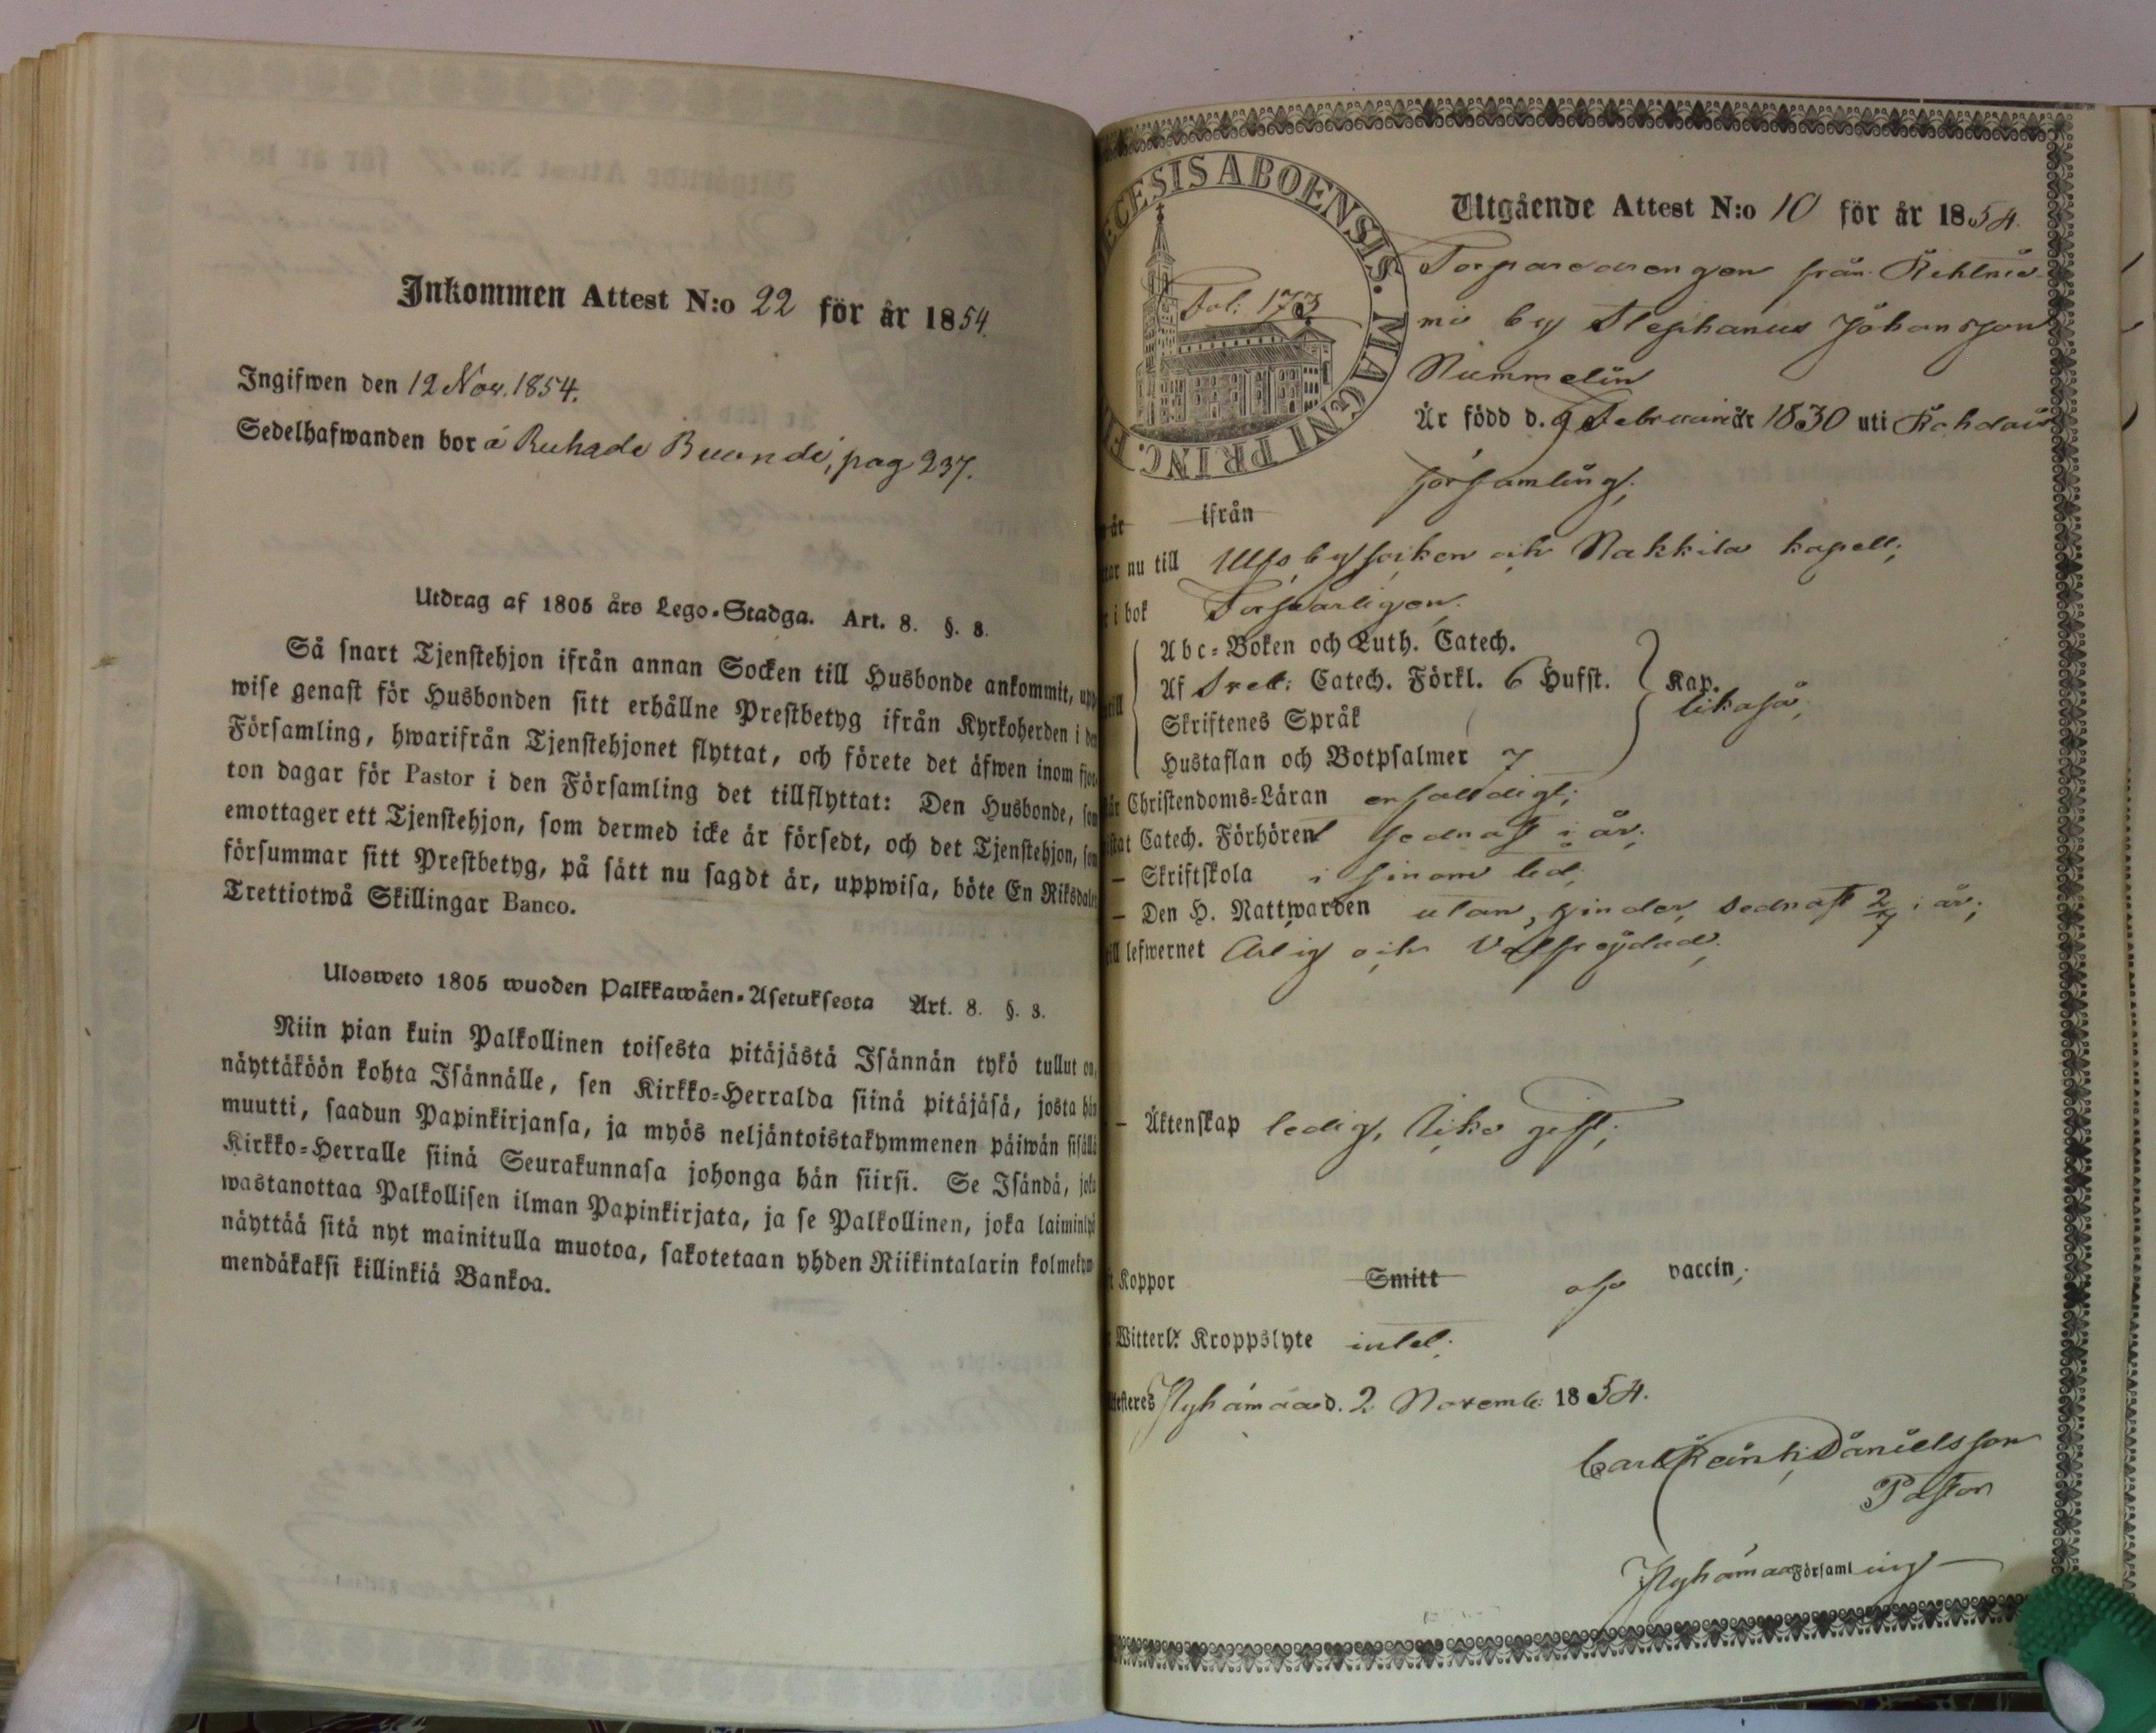 Inkommen Attest N:o 22 för år 1854.
Ingifwen den 12 Nov. 1854.
Sedelhafwanden bor å Ruhade Buandi, pag 237.
Utdrag af 1805 års Lego-Stadga. Art. 8. §. 8.
Så snart Tjenstehjon ifrån annan Socken till Husbonde ankommit, upp
wise genast för Husbonden sitt erhållne Prestbetyg ifrån Kyrkoherden i den
Församling, hwarifrån Tjenstehjonet flyttat, och förete det äfwen inom fjor
ton dagar för Pastor i den Församling det tillflyttat: Den Husbonde, som
emottager ett Tjenstehjon, som dermed icke är försedt, och det Tjenstehjon, som
försummar sitt Prestbetyg, på sätt nu sagdt är, uppwisa, böte En Riksdaler
Trettiotwå Skillingar Banco.
Ulosweto 1805 wuoden Palkkawäen-Asetuksesta Art. 8. §. 8.
Niin pian kuin Palkollinen toisesta pitäjästä Isännän tykö tullut on,
näyttäköön kohta Isännälle, sen Kirkko-Herralda siinä pitäjäsä, josta hän
muutti, saadun Papinkirjansa, ja myös neljäntoistakymmenen päiwän sisällä
Kirkko-Herralle siinä Seurakunnasa johonga hän siirsi. Se Isändä, joka
wastanottaa Palkollisen ilman Papinkirjata, ja se Palkollinen, joka laiminlyö
näyttää sitä nyt mainitulla muotoa, sakotetaan yhden Riikintalarin kolmekym
mendäkaksi killinkiä Bankoa.
ECESIS ABOENSIS. MAGNI PRINC. F
Fol: 173
Utgående Attest N:o 10 för år 1854.
Torparedrengen från
mi by Stephanus Johansson
Nummelin
Är född d. 9 Februari år 1830 uti
församling;
år ifrån
tar nu till Ulfsby socken och Nakkila kapell;
r i bok Försvarligen;
Abc-Boken och Luth. Catech.
Af Sveb: Catech. Förkl. 6 Hufst. Kap.
Skriftenes Språk likaså;
Hustaflan och Botpsalmer 7
år Christendoms-Läran enfaldigt;
stat Catech. Förhören sednast i år;
– Skriftskola i sinom tid;
– Den H. Nattwarden utan hinder, sednast 2/7 i år;
till lefwernet ärlig och välfrejdad;
– Äktenskap ledig, icke gift;
t Koppor Smitt af vaccin;
Witterl: Kroppslyte intet;
testeres Hyhämaa d. 2 Novemb: 1854.
Carl Danielsson
Pastor
Hyhämaa Församling